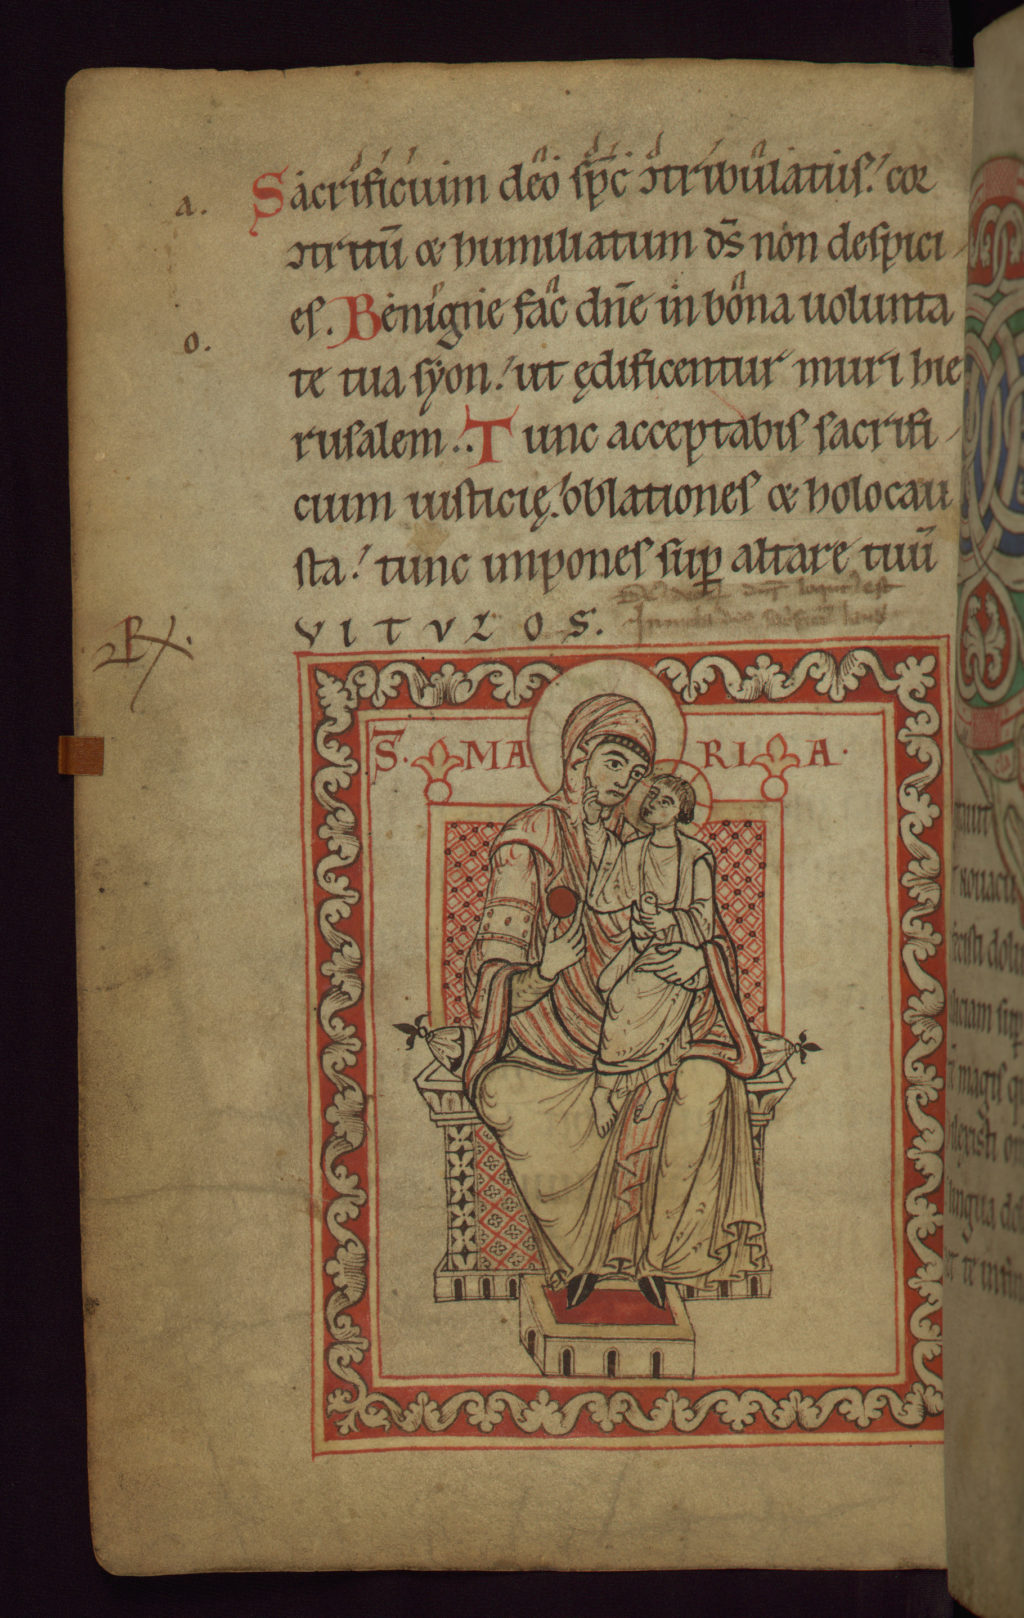 a.
Sacrificium deo sp̄c ɔtribulatus: cor
ɔtritū & humiliatum d̄s non despici
es. Benigne fac dn̄e in bona uolunta
o.
te tua syon: ut ędificentur muri hie
rusalem. Tunc acceptabis sacrifi
cium iusticię: oblationes & holocau
sta: tunc impones sup̄ altare tuū
VITVLOS.
S̄. MA RI A.
tauit
nouacu
fecisti dolu
liciam sup̄
magis q
dilexisti om
lingua dol
te in